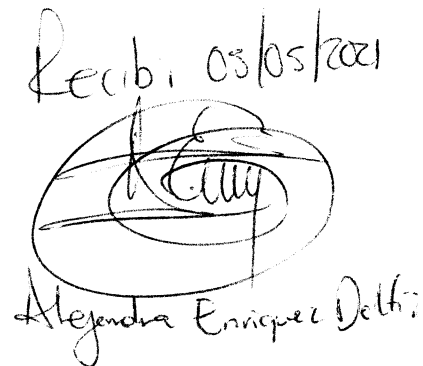 Recibi 03/05/2021
Alejandra Enriquez